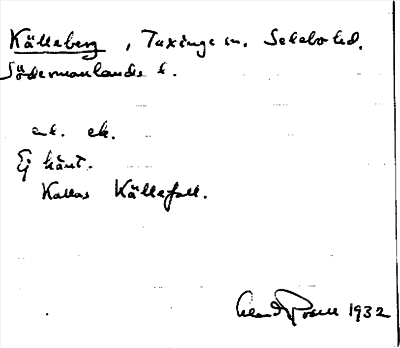 Källeberg, Taxinge sn. Selebo hd.
Södermanlands l.
ak. ek.
Ej känt.
Kallas Källefall.
1932